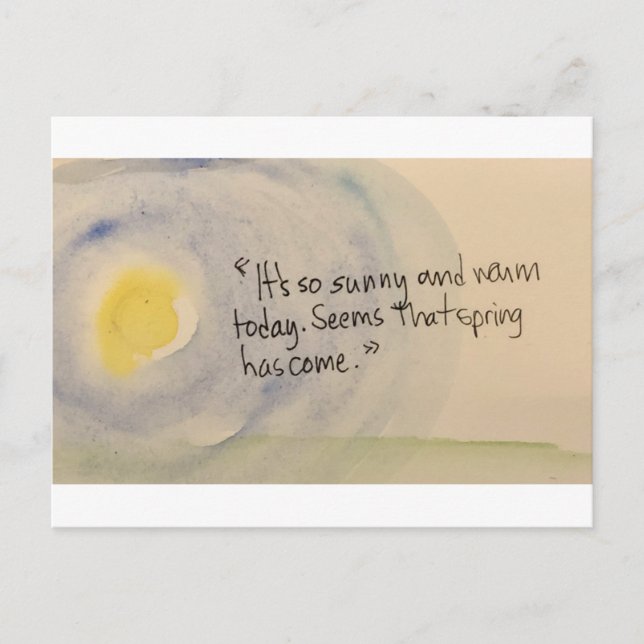 "It's so sunny and warm
today. Seems that spring
has come."